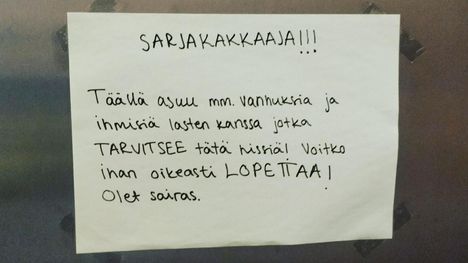 SARJAKAKKAAJA!!!
Täällä asuu mm. vanhuksia ja
ihmisiä lasten kanssa jotka
TARVITSEE tätä hissiä! Voitko
ihan oikeasti LOPETTAA!
Olet sairas.